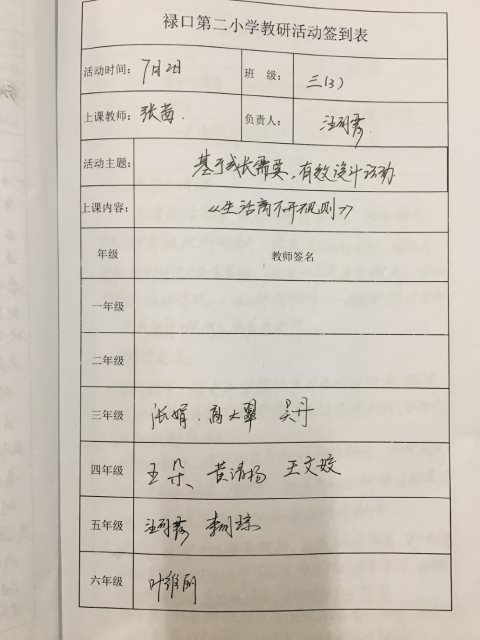 禄口第二小学教研活动签到表
活动时间： 7月2日 班 级： 三(3)
上课教师： 张茵 负责人：
活动主题： 基于成长需要，有效设计活动
上课内容： 《生活离不开规则》
年级 教师签名
一年级
二年级
三年级 张娟 高大翠 吴丹
四年级 王朵 黄清扬 王文姣
五年级
六年级 叶维丽